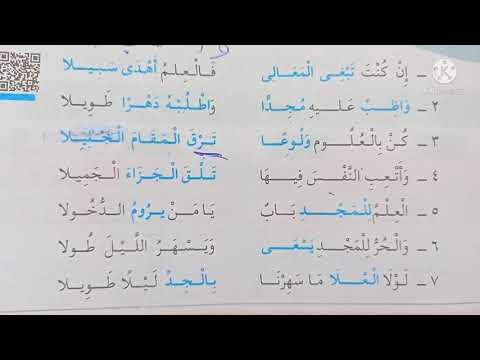 ١ - إِنْ كُنْتَ تَبْغَى الْمَعَالِى فَالْعِلْمُ أَهْدَى سَبِيلا
٢ - وَاظِبْ عَلَيهِ مُجِدًّا وَاطْلُبْهُ دَهْرًا طَوِيلا
٣ - كُنْ بِالْعُلُومِ وَلُوعًا تَرْقَ الْمَقَامَ الْجَلِيلا
٤ - وَأَتْعِبِ النَّفْسَ فِيهَا تَلْقَ الْجَزَاءَ الْجَمِيلا
٥ - الْعِلْمُ لِلْمَجْدِ بَابٌ يَا مَنْ يَرُومُ الدُّخُولا
٦ - وَالْحُرُّ لِلْمَجْدِ يَسْعَى وَيَسْهَرُ اللَّيْلَ طُولا
٧ - لَوْلَا الْعُلَا مَا سَهِرْنَا بِالْجِدِّ لَيْلًا طَوِيلا